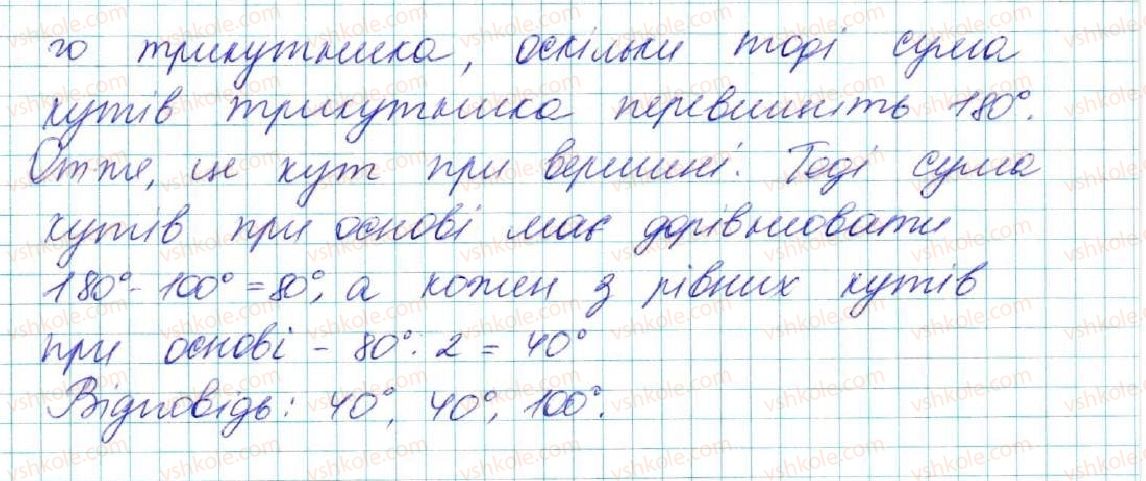 го трикутника, оскільки тоді сума
кутів трикутника перевищить 180°.
Отже, це кут при вершині. Тоді сума
кутів при основі має дорівнювати
180° - 100° = 80°, а кожен з рівних кутів
при основі - 80° : 2 = 40°
Відповідь: 40°, 40°, 100°.